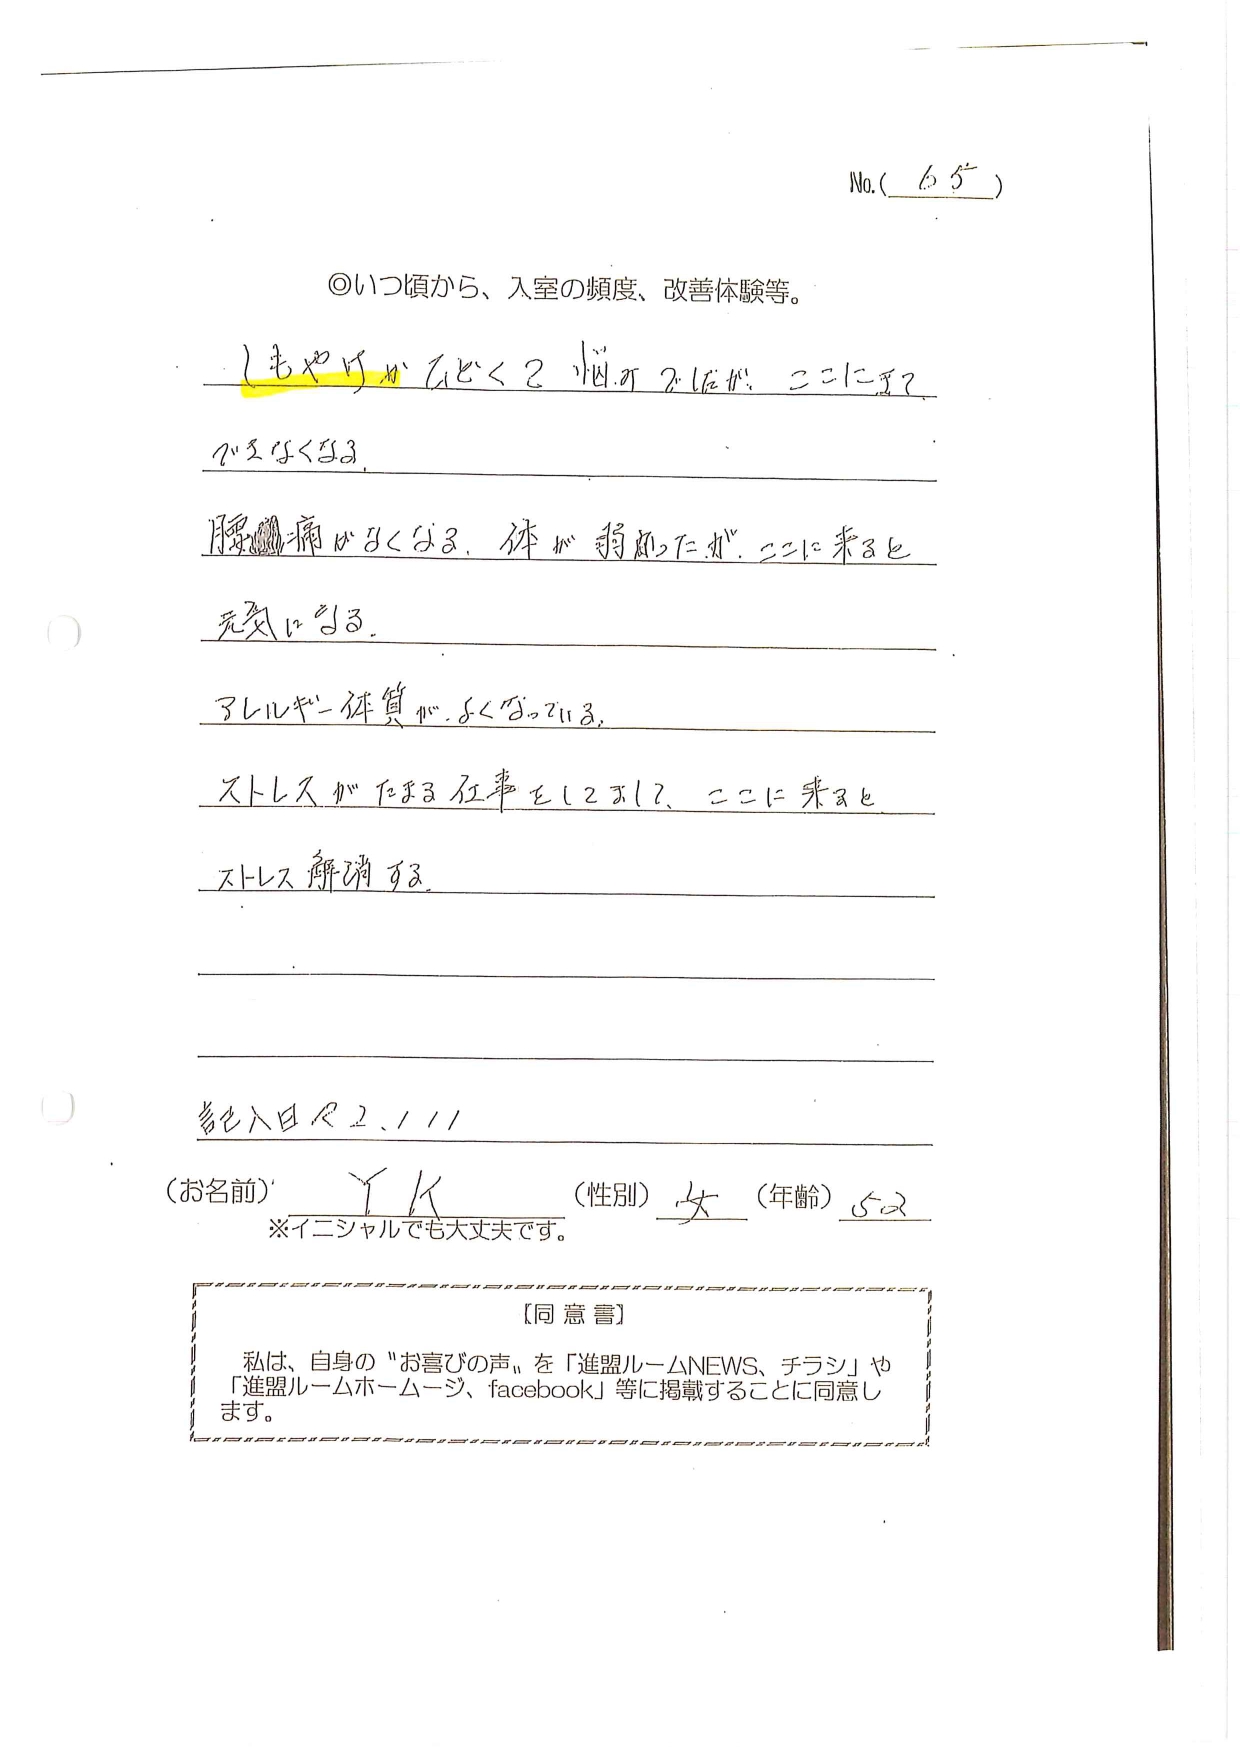 No.( 65 )
◎いつ頃から、入室の頻度、改善体験等。
しもやけがひどくて悩みでしたが、ここにきて
できなくなる。
腰痛がなくなる。体が弱かったが、ここに来ると
元気になる。
アレルギー体質が、よくなっている。
ストレスがたまる仕事をしてまして、ここに来ると
ストレス解消する。
記入日 R2.1 11
(お名前) Y K (性別) 女 (年齢) 52
※イニシャルでも大丈夫です。
【同意書】
私は、自身の〝お喜びの声〟を「進盟ルームNEWS、チラシ」や
「進盟ルームホームージ、facebook」等に掲載することに同意し
ます。